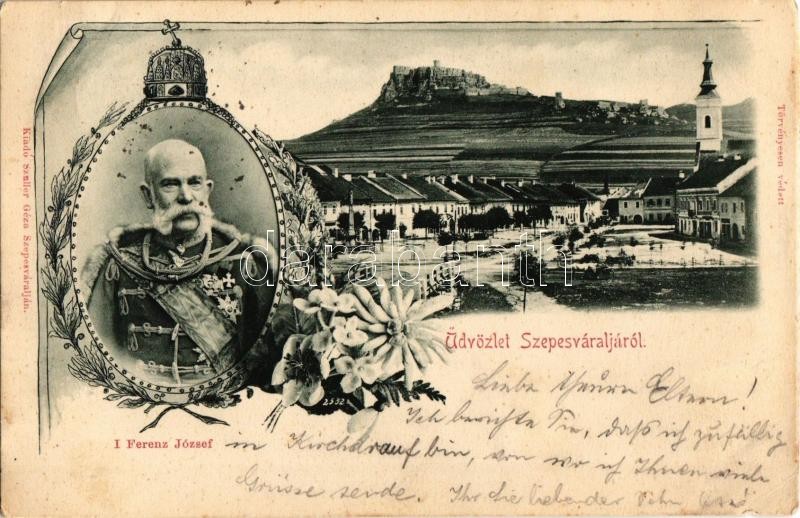 Kiadó Szuller Géza Szepesváralján.
Törvényesen védett
darabanth
2552
Üdvözlet Szepesváraljáról.
I Ferenz József
Liebe theure Eltern!
Ich berichte Sie, daß ich zufällig
in Kirchdrauf bin, von wo ich Ihnen viele
Grüsse sende. Ihr Sie liebender Sohn